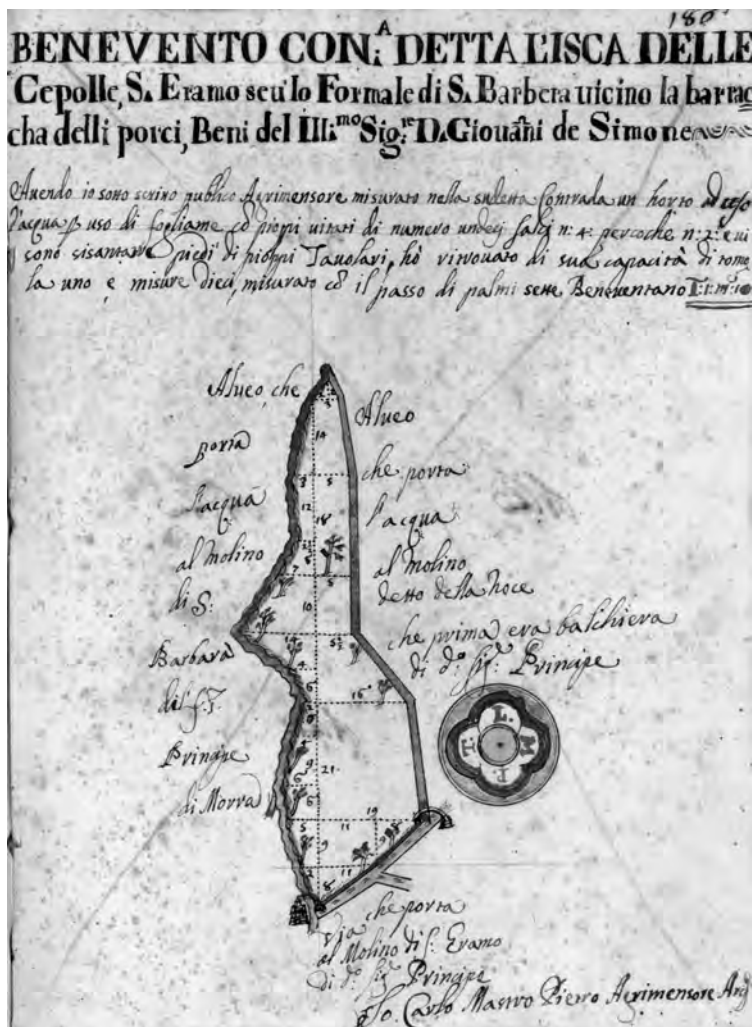 180
BENEVENTO CON:A DETTA L'ISCA DELLE
Cepolle, S. Eramo seu lo Formale di S. Barbera uicino la barrac
cha delli porci, Beni del Ill:mo Sig:re D. Giouani de Simone
Auendo io sotto scritto publico Agrimensore misurato nella sudetta Contrada un horto ad
l'acqua uso di fogliame cō pioppi uitati di numero undeci salci n: 4: percoche n: 2: e ui
sono piedi di pioppi Tauolari, hò ritrouato di sua capacità di tomo
la uno e misure dieci, misurato cō il passo di palmi sette Beneuentano T:1:m:10
Alueo che
porta
l'acqua
al Molino
di S:
Barbara
di
Principe
di Morra
Alueo
che porta
l'acqua
al Molino
detto della Noce
che prima era balchiera
di d:o Sig: Principe
L. M P. T.
3
14
3 5
12
18
7 8
10
5½
4
6
16
9
21
6 6
5 11 19
9
11
8
Via che porta
al Molino di S: Eramo
di d:o Sig: Principe
Io Carlo Mastro Pietro Agrimensore